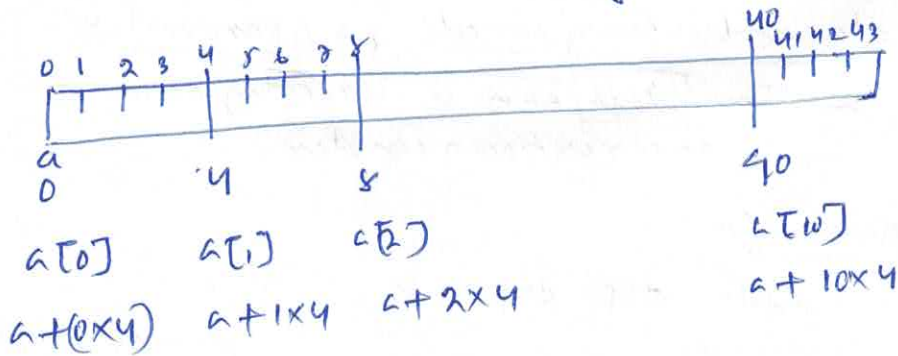 40
0 1 2 3 4 5 6 7 8 41 42 43
a
0 4 8 40
a[0] a[1] a[2] a[10]
a+(0×4) a+1×4 a+2×4 a+10×4